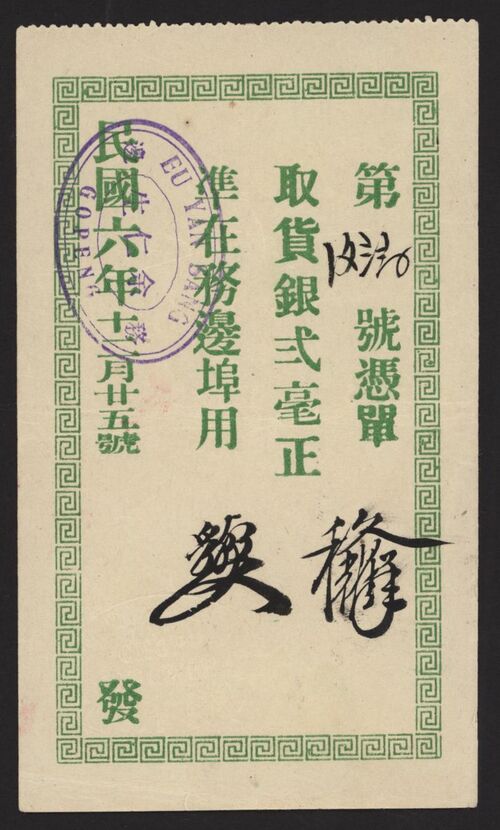 第 號憑單
取貨銀弍毫正
准在務邊埠用
民國六年十二月廿五號
發
EU YAN SANG
GOPENG
務邊
余仁生